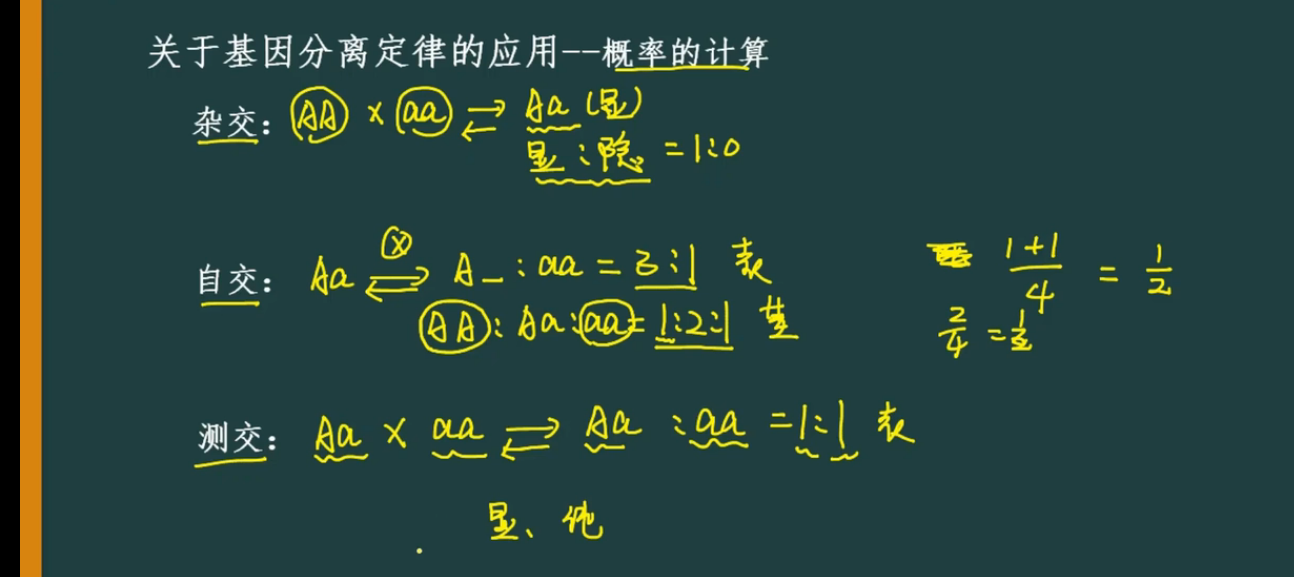 关于基因分离定律的应用--概率的计算
杂交: AA × aa ⇌ Aa (显)
显:隐 = 1:0
自交: Aa ⇌ A_ : aa = 3:1 表
AA : Aa : aa = 1:2:1 基
1+1/4 = 1/2
2/4 = 1/2
测交: Aa × aa ⇌ Aa : aa = 1:1 表
显、纯